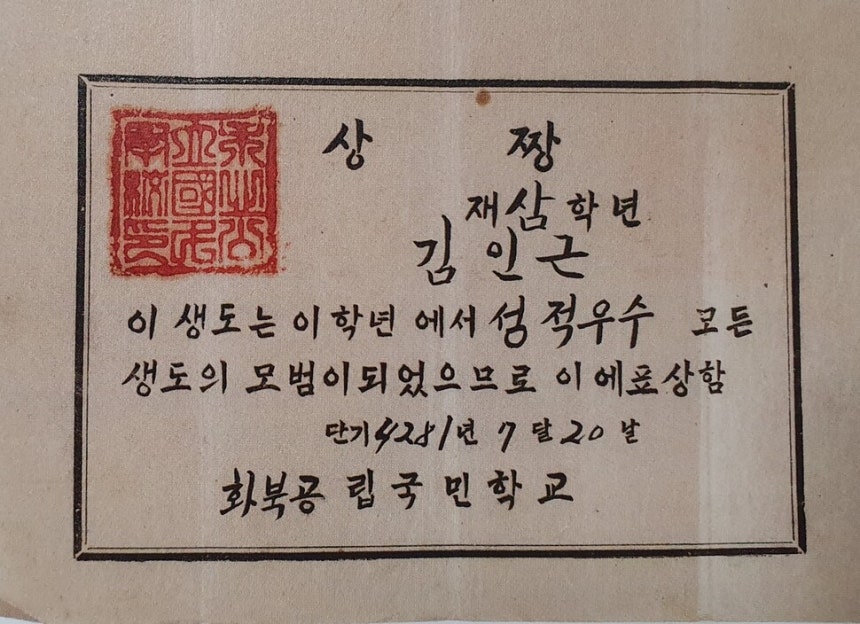 상 짱
재삼학년
김인근
이 생도는 이학년 에서 성적우수 모든
생도의 모범이되었으므로 이에표상함
단기4281년 7달20날
화북공립국민학교